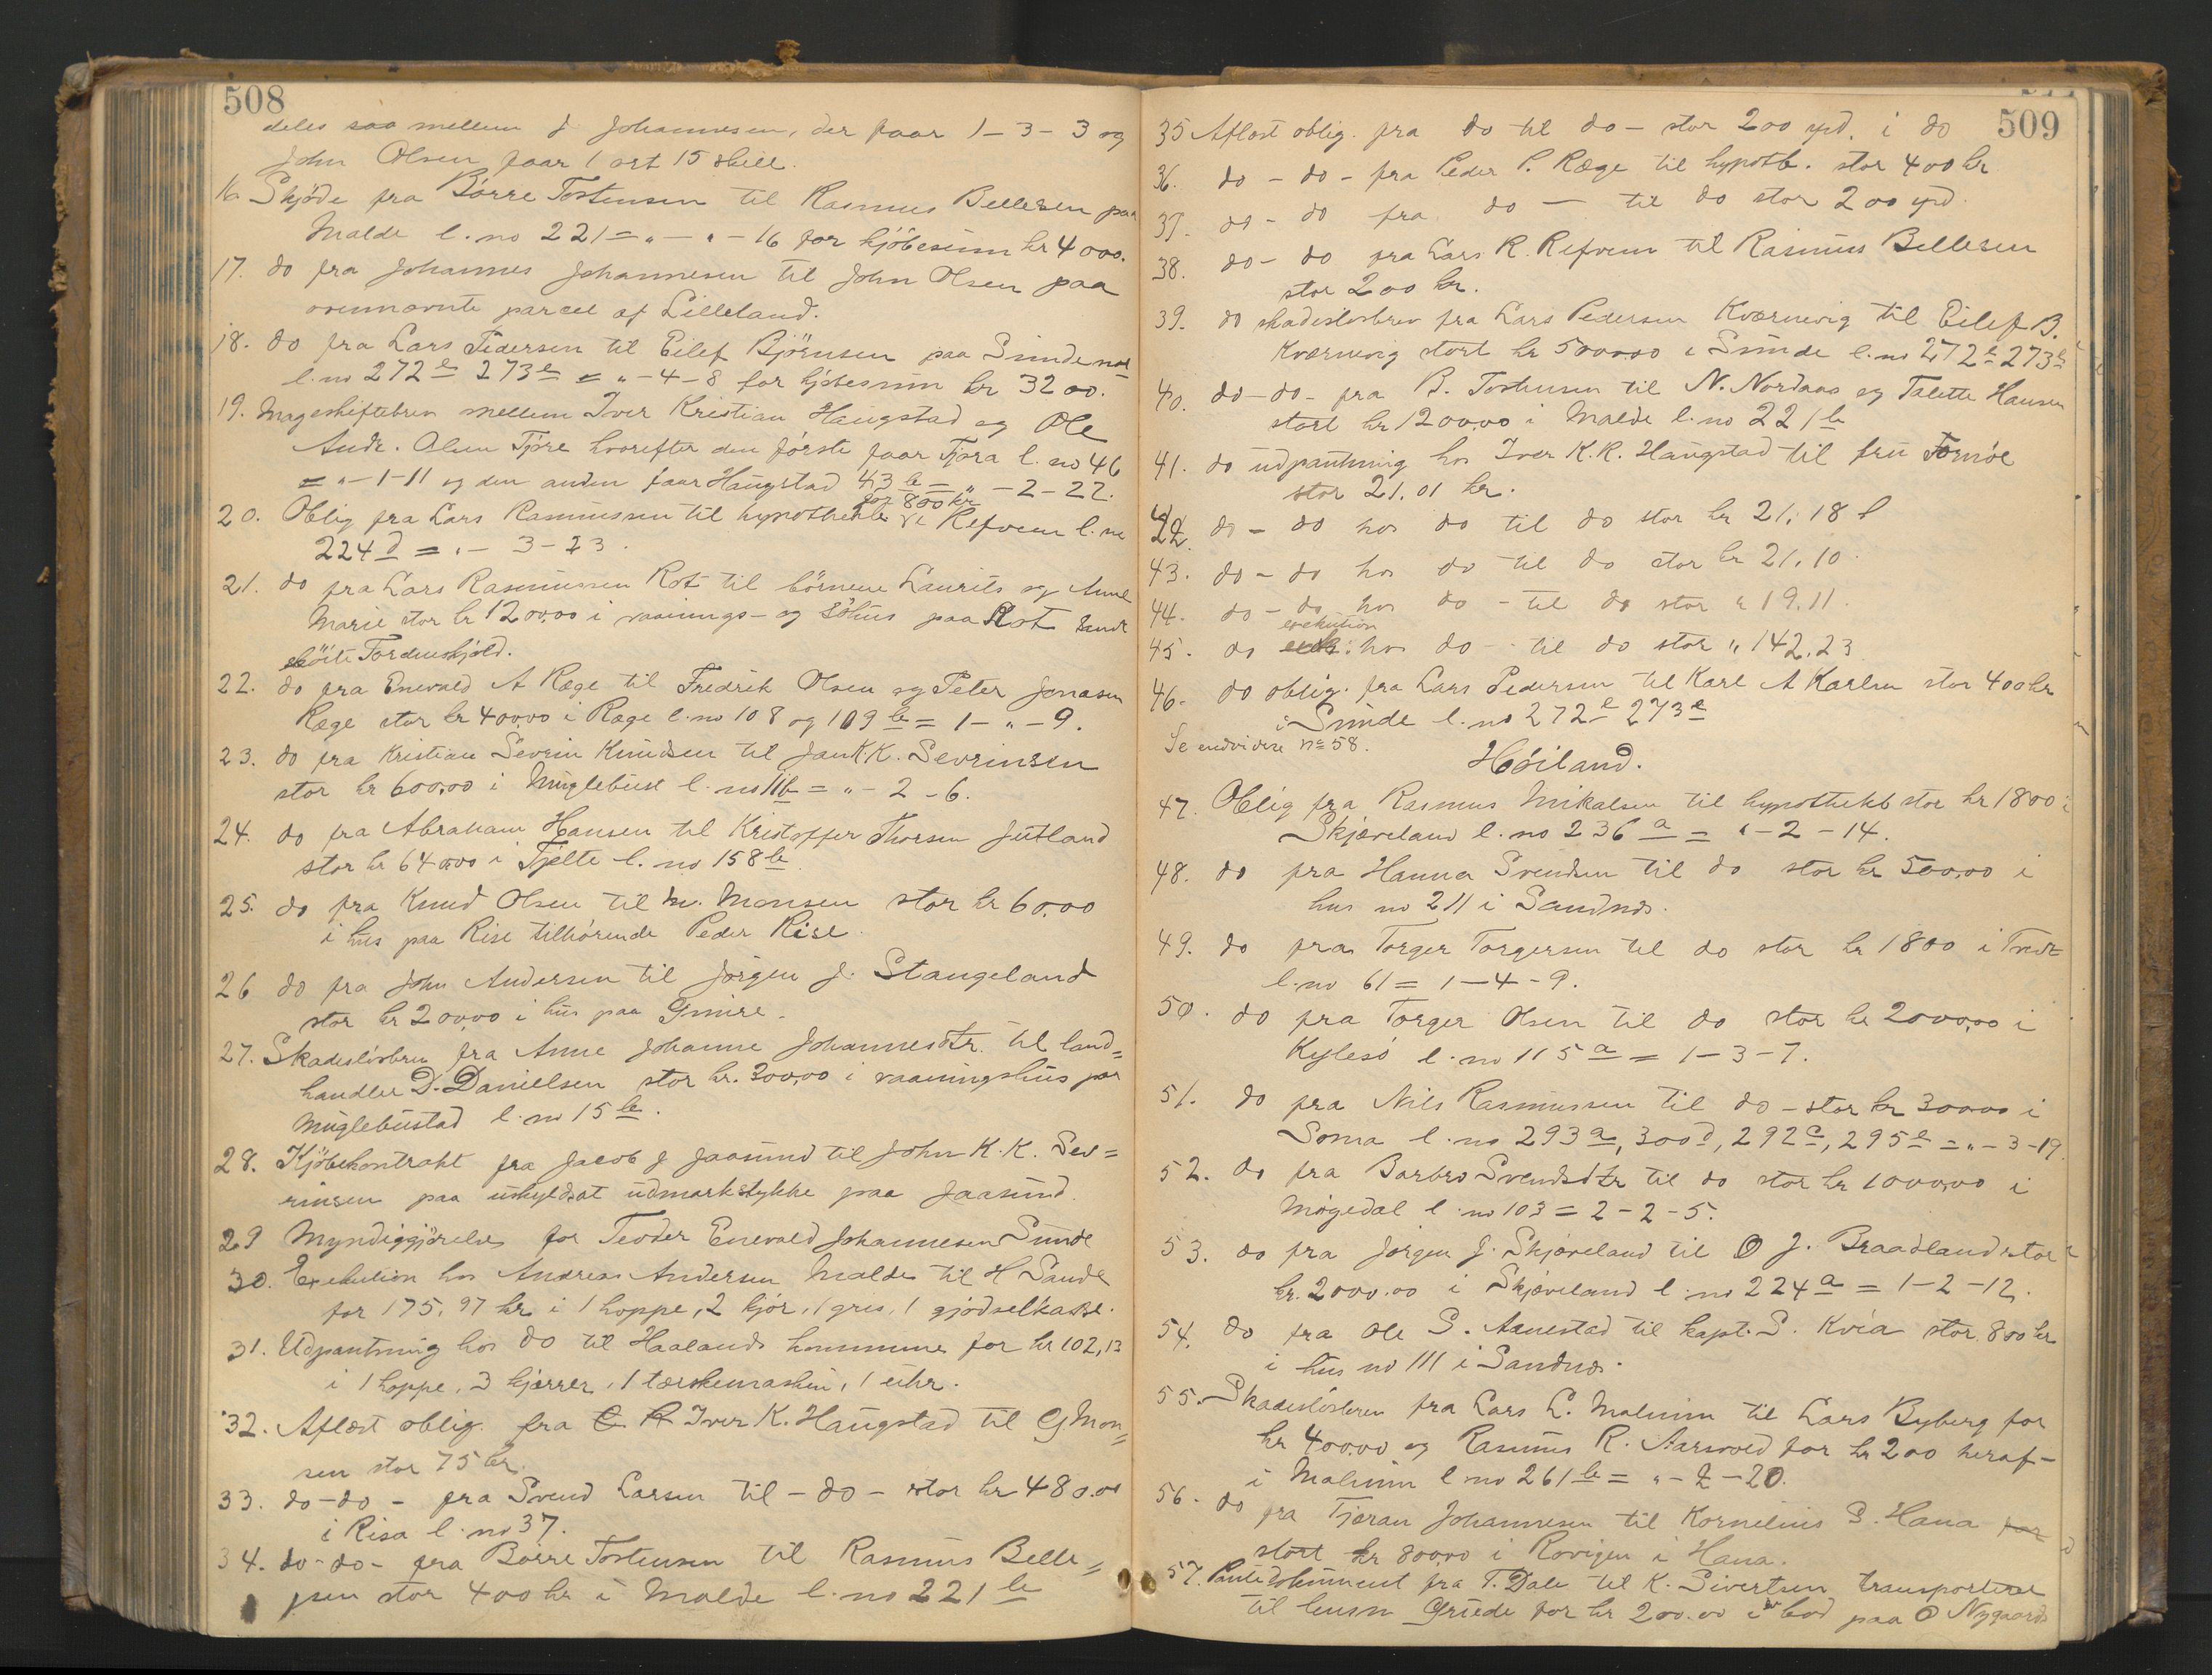 508
deles saa mellem J Johannesen, der faar 1-3-3 og
John Olsen faar 1 ort 15 skill.
16. Skjøde fra Börre Tostensen til Rasmus Bellesen paa
Malde l. no 221 = „ - „ - 16 for kjöbesum kr 4000.
17. do fra Johannes Johannesen til John Olsen paa
ovennævnte parcel af Lilleland.
18. do fra Lars Pedersen til Eilef Björnsen paa Sunde
l. no 272 273 = „ - 4 - 8 for kjöbesum kr 3200.
19. Mageskiftebrev mellem Iver Kristian Haugstad og Ole
Andr. Olsen Tjöre hvorefter den förste faar Tjora l. no 46
= „ - 1 - 11 og den anden faar Haugstad 43 b = „ - 2 - 22.
for 800 kr
20. Oblig fra Lars Rasmussen til hypothekb i Refvem l. no
224 d = „ - 3 - 23.
21. do fra Lars Rasmussen Rot til börnene Laurits og Anne
Marie stor kr 1200,00 i vaanings- og söhus paa Rot samt
sköite Tordenskjold.
22. do fra Enevald A Ræge til Fredrik Olsen og Peter Jonasen
Ræge stor kr 400,00 i Ræge l. no 108 og 109 b = 1 - „ - 9.
23. do fra Kristian Sevrin Knudsen til Jan K.K. Sevrinsen
stor kr 600,00 i Muglebust l. no 11 b = „ - 2 - 6.
24. do fra Abraham Hansen til Kristoffer Thorsen Jutland
stor kr 640,00 i Tjelte l. no 158 b
25. do fra Knud Olsen til M. Monsen stor kr 60,00
i hus paa Rise tilhörende Peder Rise.
26 do fra John Andersen til Jörgen J. Stangeland
stor kr 200,00 i hus paa Gimre.
27. Skadeslösbrev fra Anne Johanne Johannesdtr. til land=
handler D. Danielsen stor kr. 300,00 i vaaningshus paa
Muglebustad l. no 15 b.
28. Kjöbekontrakt fra Jacob J Jaasund til John K.K. Sev=
rinsen paa uskyldsat udmarkstykke paa Jaasund.
29 Myndiggjörelse for Teodor Enevald Johannesen Sunde
30. Exekution hos Andreas Andersen Malde til H Sande
for 175,97 kr i 1 hoppe, 2 kjör, 1 gris, 1 gjödselkasse.
31. Udpantning hos do til Haalands kommune for kr 102,13
i 1 hoppe, 3 kjærrer, 1 tærskemaskin, 1 uhr.
32. Aflæst oblig. fra Iver K. Haugstad til G. Mon=
sen stor 75 kr.
33. do - do - fra Svend Larsen til - do - stor kr 480.00
i Risa l. no 37.
34. do - do - fra Börre Tostensen til Rasmus Belle=
sen stor 400 kr i Malde l. no 221 b
509
35 Aflæst oblig. fra do til do - stor 200 spd. i do
36. do - do - fra Peder P. Ræge til hypothb. stor 400 kr
37. do - do fra do - til do stor 200 spd.
38. do - do fra Lars R. Refvem til Rasmus Bellesen
stor 200 kr.
39. do skadeslosbrev fra Lars Pedersen Kværnevig til Eilef B.
Kværnevig stort kr 5000,00 i Sunde l. no 272 273
40. do - do - fra B. Tostensen til N. Nordaas og Talette Hansen
stort kr 1200,00 i Malde l. no 221 b
41. do udpantning hos Iver K.R. Haugstad til fru Tornöe
stor 21.01 kr.
42. do - do hos do til do stor kr 21,18
43. do - do hos do til do stor kr 21,10.
44. do - do hos do - til do stor „ 19.11.
exekution
45. do hos do - til do stor „ 142,23
46. do oblig. fra Lars Pedersen til Karl A Karlsen stor 400 kr
i Sunde l. no 272 273
Se endvidere no 58.
Höiland.
47. Oblig fra Rasmus Mikalsen til hypothekb stor kr 1800 i
Skjæveland l. no 236 a = „ - 2 - 14.
48. do fra Hanna Svendsen til do stor kr 500,00 i
hus no 211 i Sandnæs.
49. do fra Torger Torgersen til do stor kr 1800 i
l. no 61 = 1 - 4 - 9.
50. do fra Torger Olsen til do stor kr 2000,00 i
Kylesö l. no 115 a = 1 - 3 - 7.
51. do fra Nils Rasmussen til do - stor kr 3000,00 i
Soma l. no 293 a, 300 d, 292 c, 295 e = „ - 3 - 19.
52. do fra Barbro Svendsdtr til do stor kr 1000,00 i
Mögedal l. no 103 = 2 - 2 - 5.
53. do fra Jörgen J. Skjæveland til O J. Braadland stor
kr. 2000.00 i Skjæveland l. no 224 a = 1 - 2 - 12.
54. do fra Ole S. Aanestad til kapt. S. Kvia stor 800 kr
i hus no 111 i Sandnæs.
55. Skadeslösbrev fra Lars L. Malmin til Lars Byberg for
kr 400,00 og Rasmus R. Aarsvold for kr 200 heraf
i Malmin l. no 261 b = „ - 2 - 20.
56. do fra Tjeran Johannesen til Kornelius S. Hana for
stort kr 800,00 i Rovigen i Hana.
57. Pantedokument fra T. Dale til K. Sivertsen transporteret
til Grude for kr 200.00 i bod paa O Nygaards